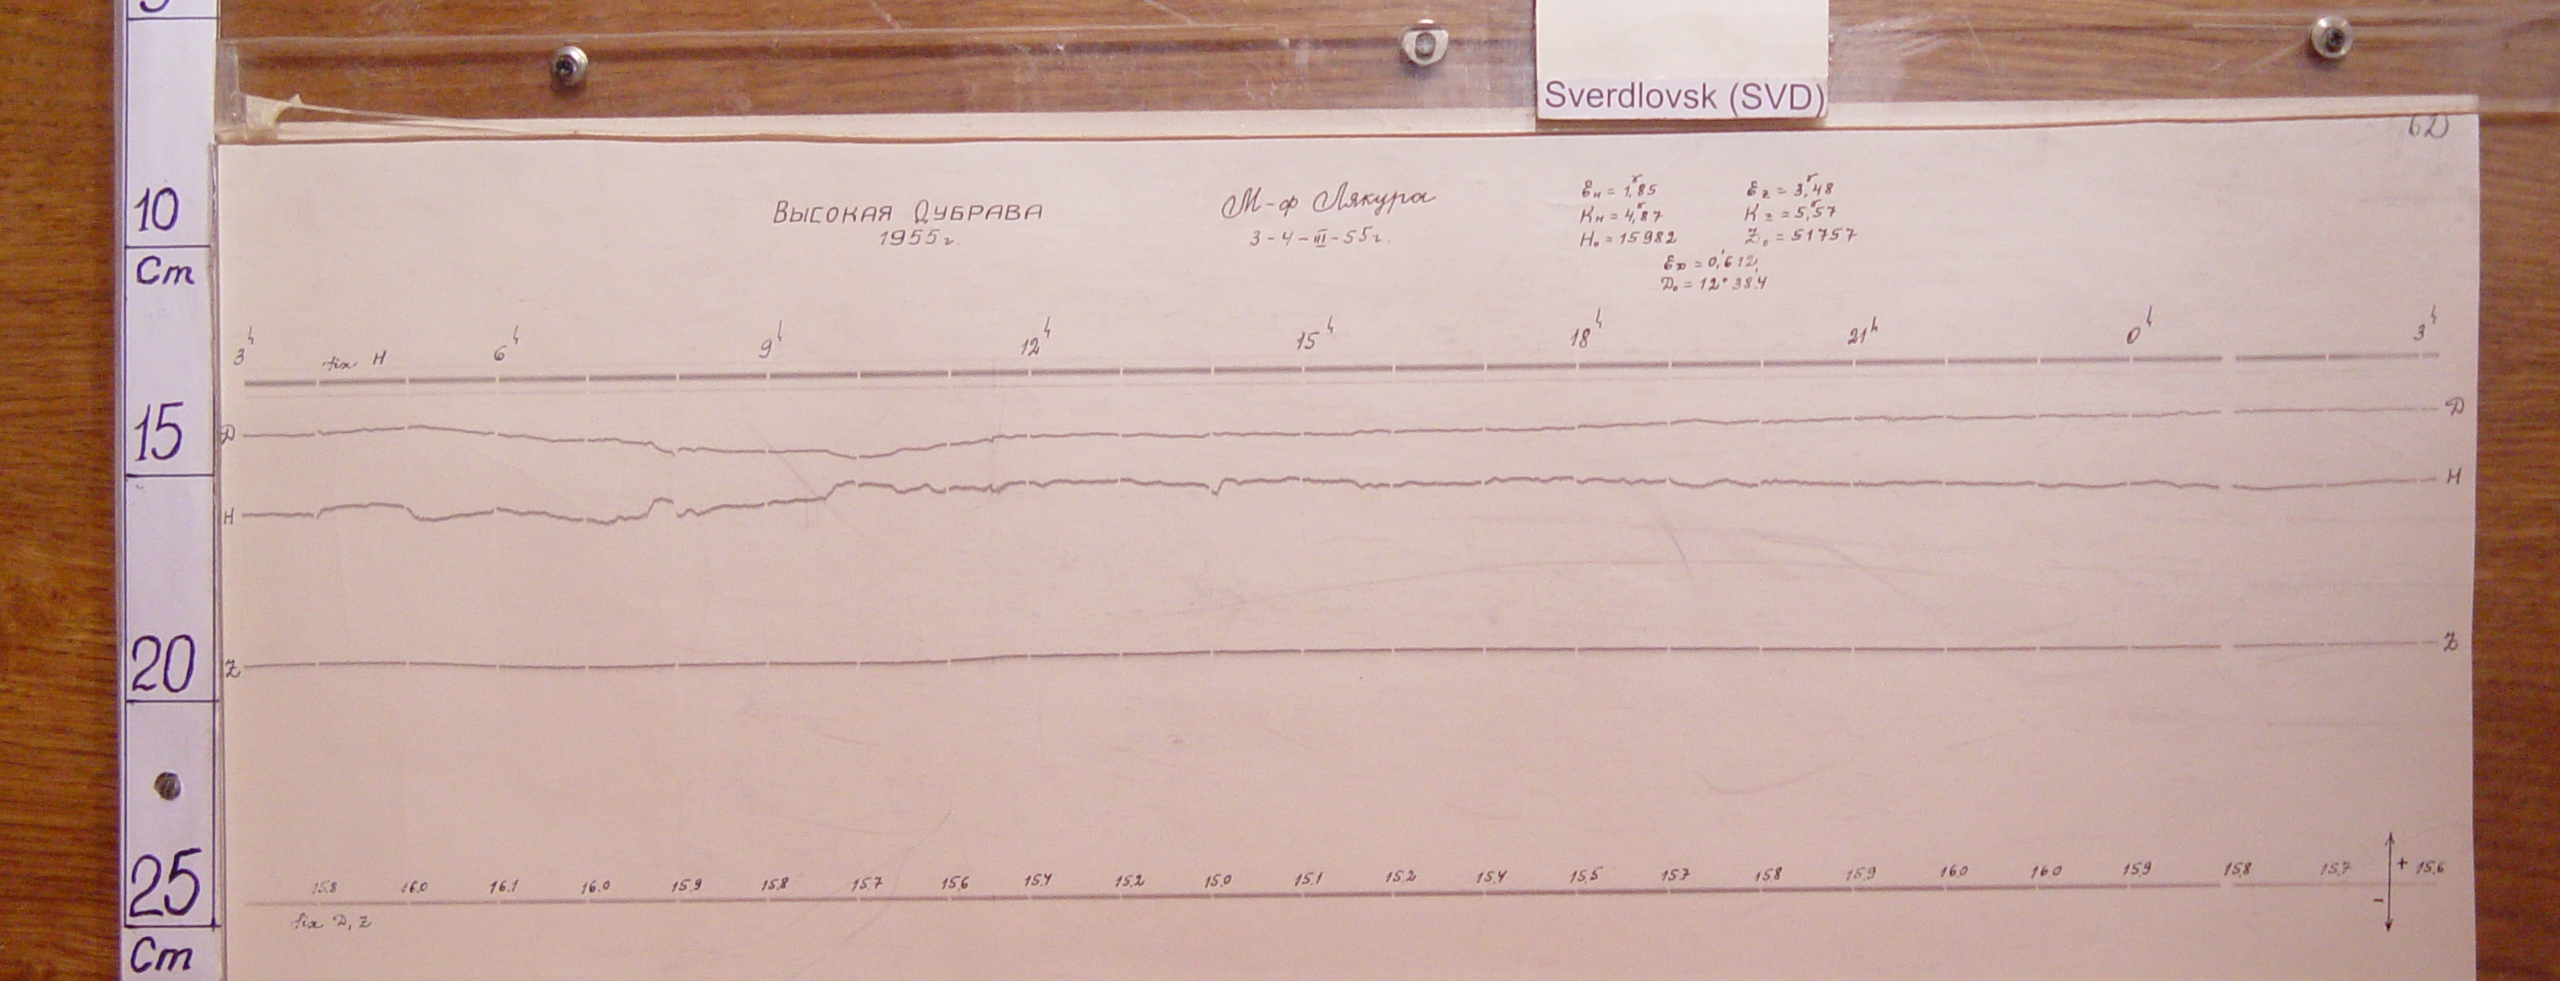 5
Sverdlovsk (SVD)
62
10
Cm
Высокая Дубрава
1955г.
М-ф Лякура
3-4-III-55г.
Ɛн = 1,γ85
Кн = 4,γ87
Н₀ = 15982
Ɛz = 3,γ48
Кz = 5,γ57
Z₀ = 51757
ƐD = 0,'612
D₀ = 12° 38,'4
3h 6h 9h 12h 15h 18h 21h 0h 3h
fix H
15
D D
H H
20
Z Z
25
Cm
15.8 16.0 16.1 16.0 15.9 15.8 15.7 15.6 15.4 15.2 15.0 15.1 15.2 15.4 15.5 15.7 15.8 15.9 16.0 16.0 15.9 15.8 15.7 + 15.6
-
fix D, Z